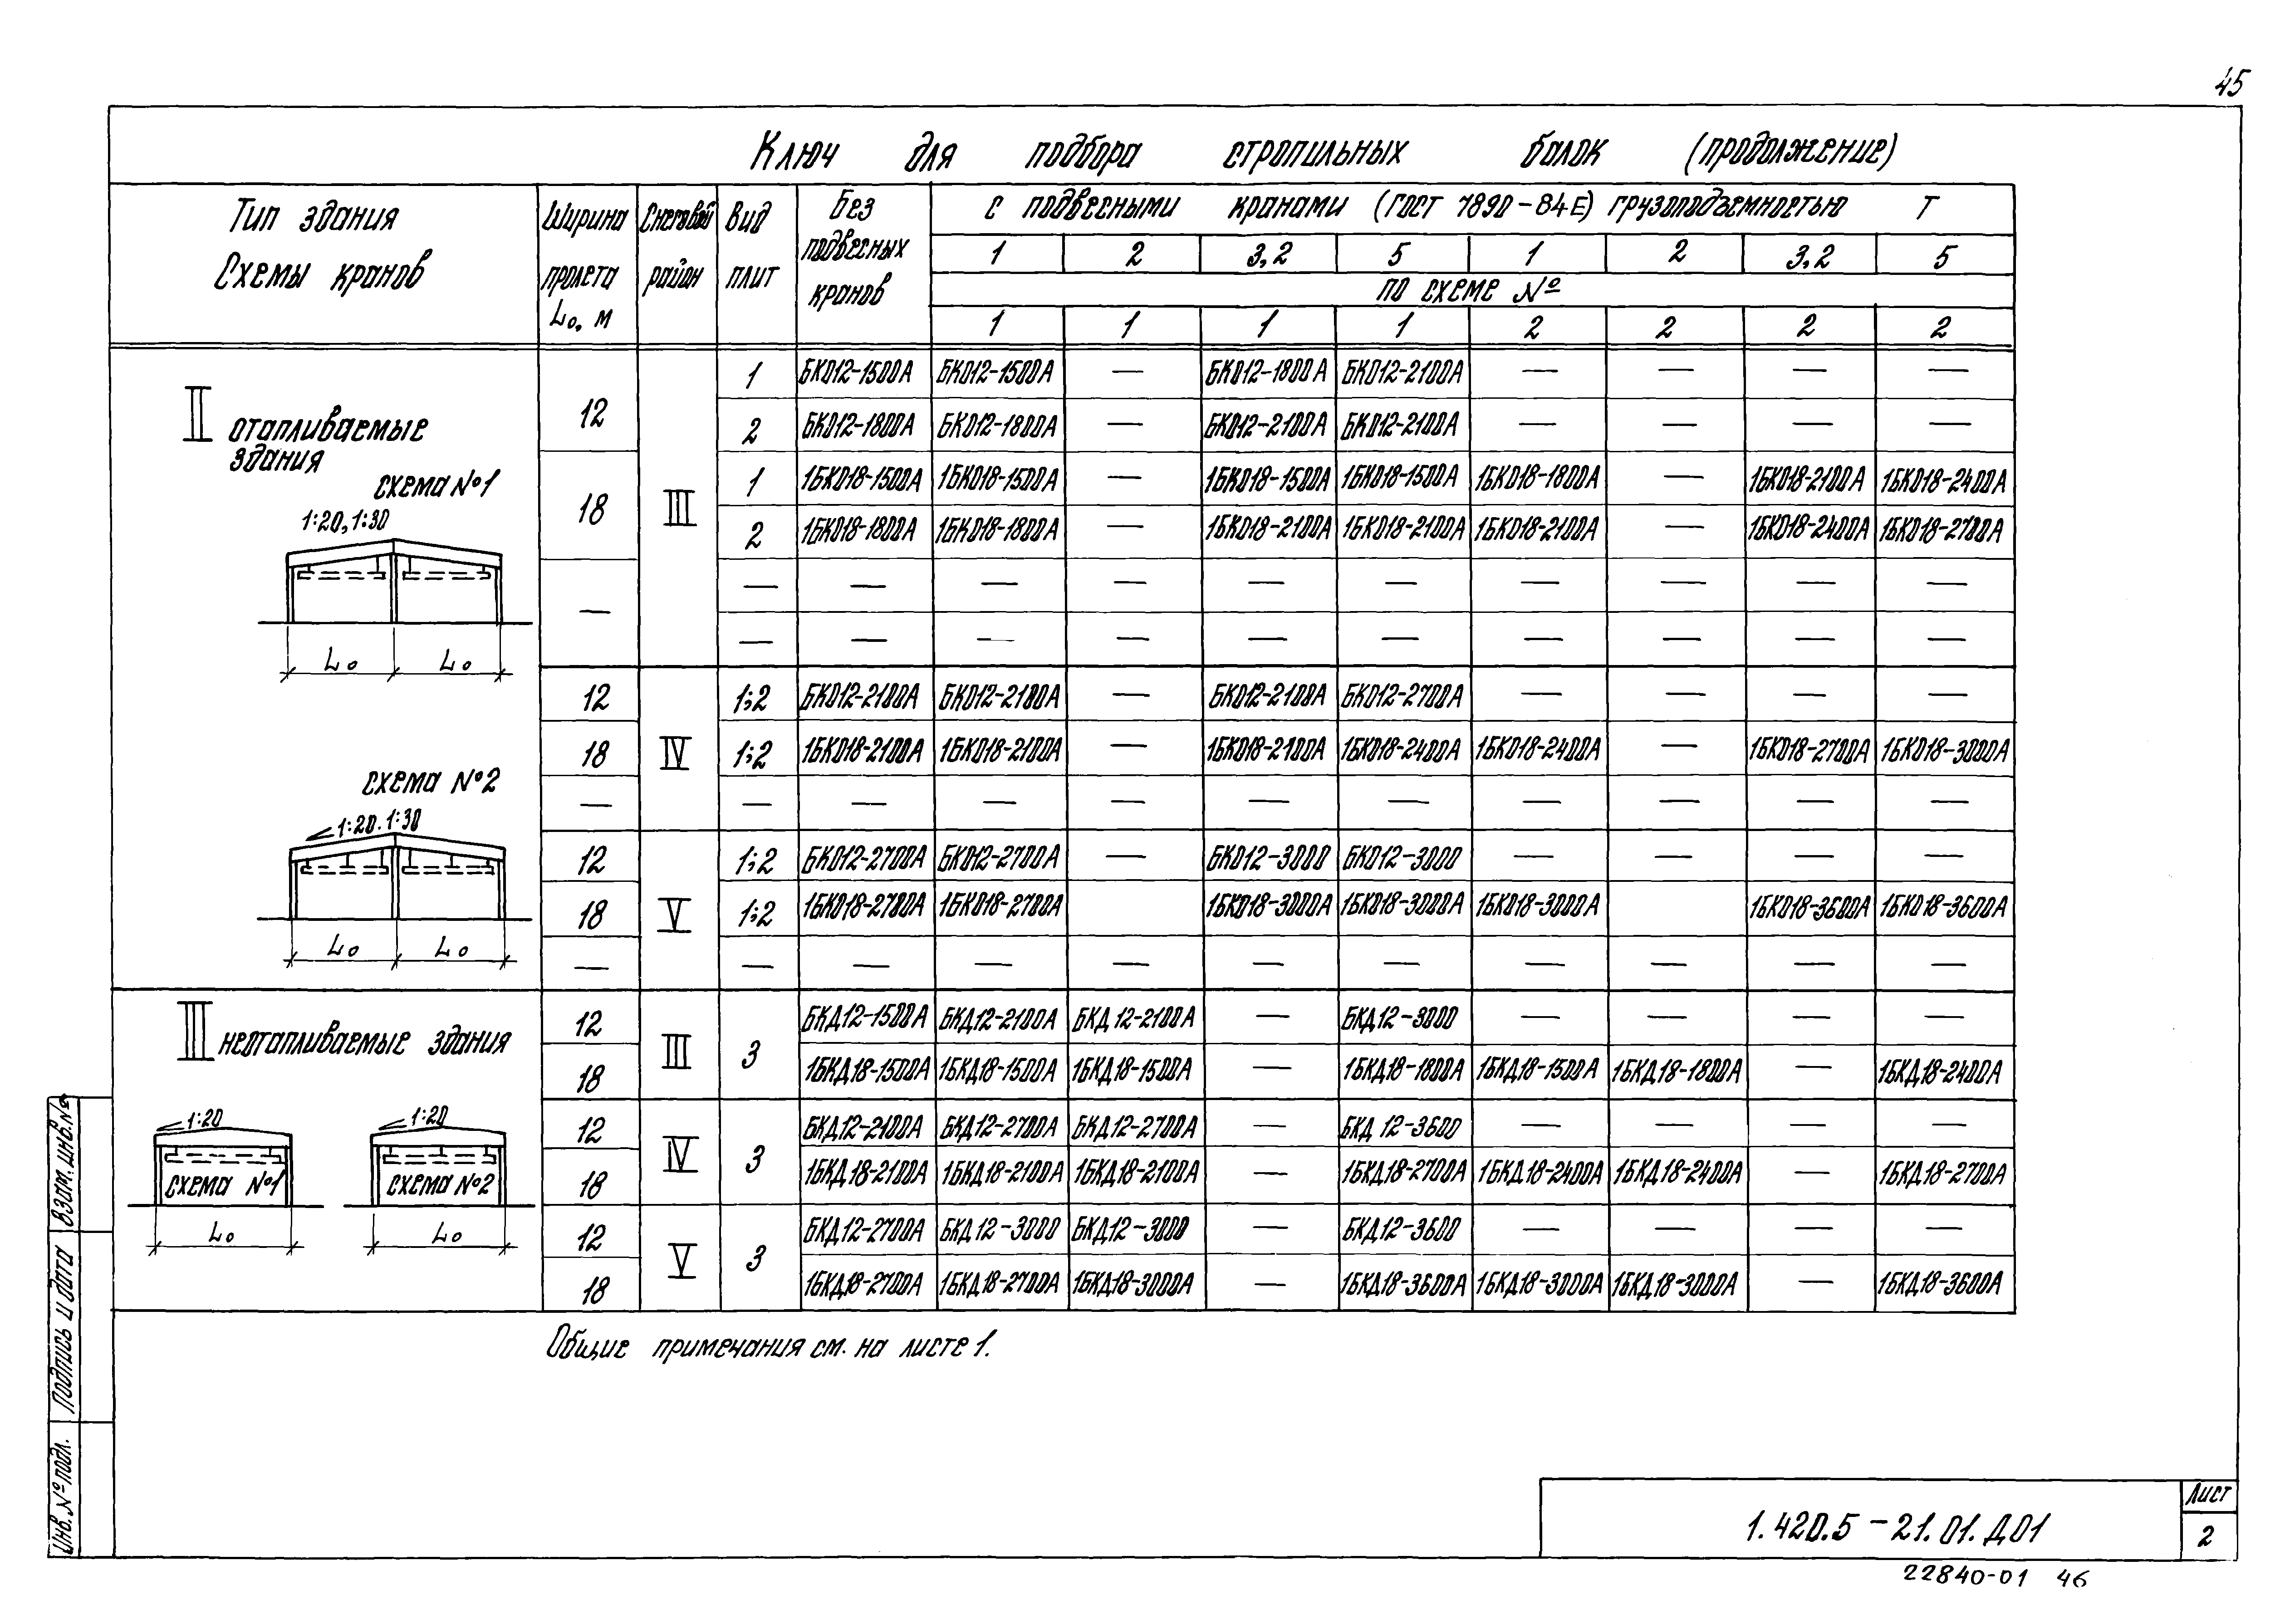 45
Ключ для подбора стропильных балок (продолжение)
Тип здания
Схемы кранов
Ширина пролета L₀, м
Снеговой район
Вид плит
Без подвесных кранов
с подвесными кранами (ГОСТ 7890-84Е) грузоподъемностью Т
1 2 3,2 5 1 2 3,2 5
по схеме №
1 1 1 1 2 2 2 2
II отапливаемые
здания
схема №1
1:20, 1:30
L₀ L₀
схема №2
1:20. 1:30
L₀ L₀
12 III 1 БК012-1500А БК012-1500А — БК012-1800А БК012-2100А — — — —
2 БК012-1800А БК012-1800А — БК012-2100А БК012-2100А — — — —
18 1 1БК018-1500А 1БК018-1500А — 1БК018-1500А 1БК018-1500А 1БК018-1800А — 1БК018-2100А 1БК018-2400А
2 1БК018-1800А 1БК018-1800А — 1БК018-2100А 1БК018-2100А 1БК018-2100А — 1БК018-2400А 1БК018-2700А
— — — — — — — — — — —
— — — — — — — — — —
12 IV 1;2 БК012-2100А БК012-2100А — БК012-2100А БК012-2700А — — — —
18 1;2 1БК018-2100А 1БК018-2100А — 1БК018-2100А 1БК018-2400А 1БК018-2400А — 1БК018-2700А 1БК018-3000А
— — — — — — — — — — —
12 V 1;2 БК012-2700А БК012-2700А — БК012-3000 БК012-3000 — — — —
18 1;2 1БК018-2700А 1БК018-2700А 1БК018-3000А 1БК018-3000А 1БК018-3000А 1БК018-3600А 1БК018-3600А
— — — — — — — — — — —
III неотапливаемые здания
1:20 1:20
схема №1 схема №2
L₀ L₀
12 III 3 БКД12-1500А БКД12-2100А БКД12-2100А — БКД12-3000 — — — —
18 1БКД18-1500А 1БКД18-1500А 1БКД18-1500А — 1БКД18-1800А 1БКД18-1500А 1БКД18-1800А — 1БКД18-2400А
12 IV 3 БКД12-2100А БКД12-2700А БКД12-2700А — БКД 12-3600 — — — —
18 1БКД18-2100А 1БКД18-2100А 1БКД18-2100А — 1БКД18-2700А 1БКД18-2400А 1БКД18-2400А — 1БКД18-2700А
12 V 3 БКД12-2700А БКД12-3000 БКД12-3000 — БКД12-3600 — — — —
18 1БКД18-2700А 1БКД18-2700А 1БКД18-3000А — 1БКД18-3600А 1БКД18-3000А 1БКД18-3000А — 1БКД18-3600А
Общие примечания см. на листе 1.
Инв. № подл. Подпись и дата Взам. инв. №
1.420.5-21.01.Д01
Лист
2
22840-01 46